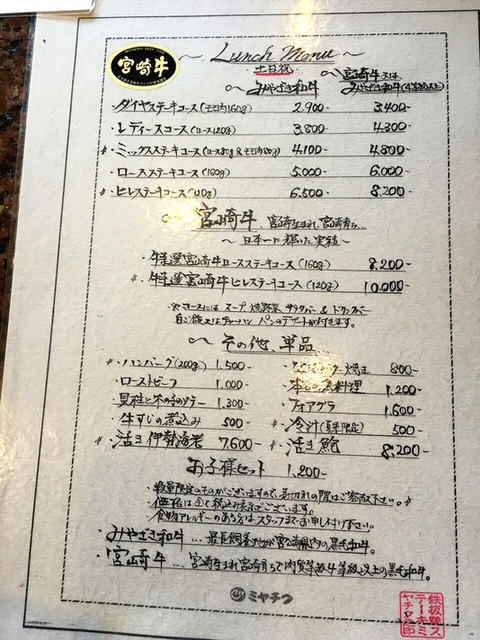 宮崎牛
~ Lunch Menu ~
土日祝
みやざき和牛
宮崎牛又は
みやざき和牛(4等級以上)
・ダイヤステーキコース(モモ肉160g) 2.900- 3.400-
・レディースコース(ロース120g) 3.800- 4.300-
・ミックスステーキコース(ロース80g&モモ肉80g) 4.100- 4.800-
・ロースステーキコース(160g) 5.000- 6.000-
・ヒレステーキコース(120g) 6.500- 8.200-
宮崎牛、宮崎生まれ、宮崎育ち…
~日本一に輝いた実績~
・特選宮崎牛ロースステーキコース(160g) 8.200-
・特選宮崎牛ヒレステーキコース(120g) 10.000-
※コースには スープ 焼野菜 サラダバー & ドリンクバー
パン のデザートが付きます。
~その他、単品…
・ハンバーグ(200g) 1.500- 800-
・ローストビーフ 1.000- 料理 1.200-
・貝柱と木の子のソテー 1.300- ・フォアグラ 1.600-
・牛すじの煮込み 500- ・冷汁(夏季限定) 500-
・活き伊勢海老 7.600- ・活き鮑 8,200-
お子様セット 1.200-
・数量限定のものがございますので、売切れの際はご容赦下さい。
・価格は全て税込み表示でございます。
・食物アレルギーのある方はスタッフまでお申し付け下さい。
・みやざき和牛 … 最長飼養地が宮崎県内の黒毛和牛。
・宮崎牛 … 宮崎生まれ宮崎育ちで肉質等級4等級以上の黒毛和牛。
ミヤチク
鉄板焼ス
テーキミ
ヤチク印